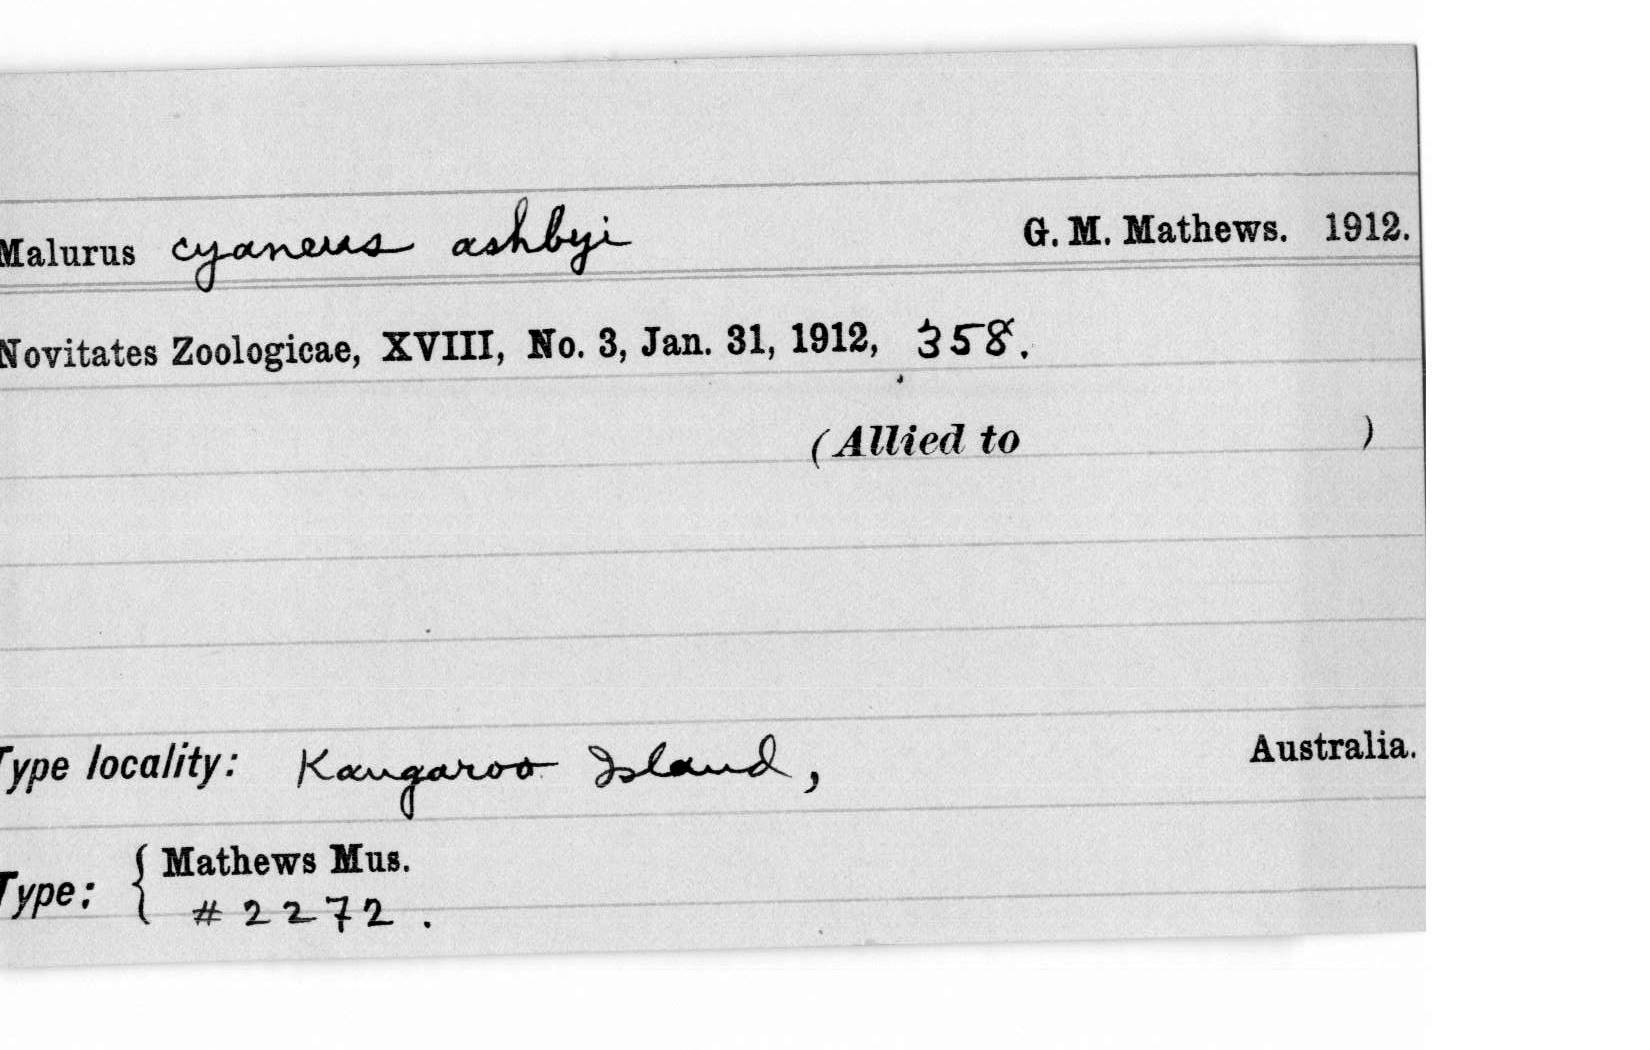 Malurus cyaneus ashbyi G. M. Mathews. 1912.
Novitates Zoologicae, XVIII, No. 3, Jan. 31, 1912, 358.
(Allied to )
Type locality: Kangaroo Island, Australia.
Type: { Mathews Mus.
#2272.